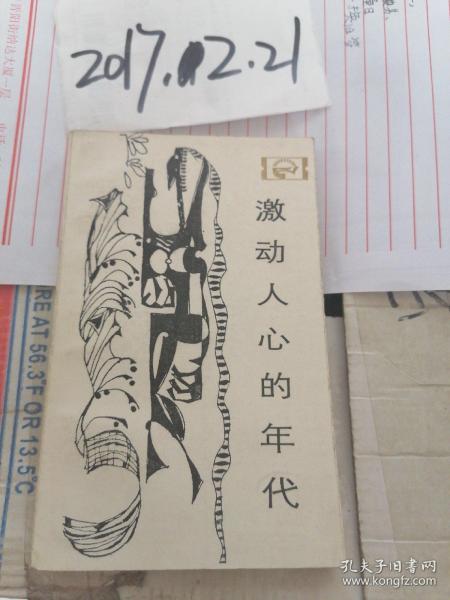 2017.12.21
激动人心的年代
RE AT 56.3°F OR 13.5°C
孔夫子旧书网
www.kongfz.com